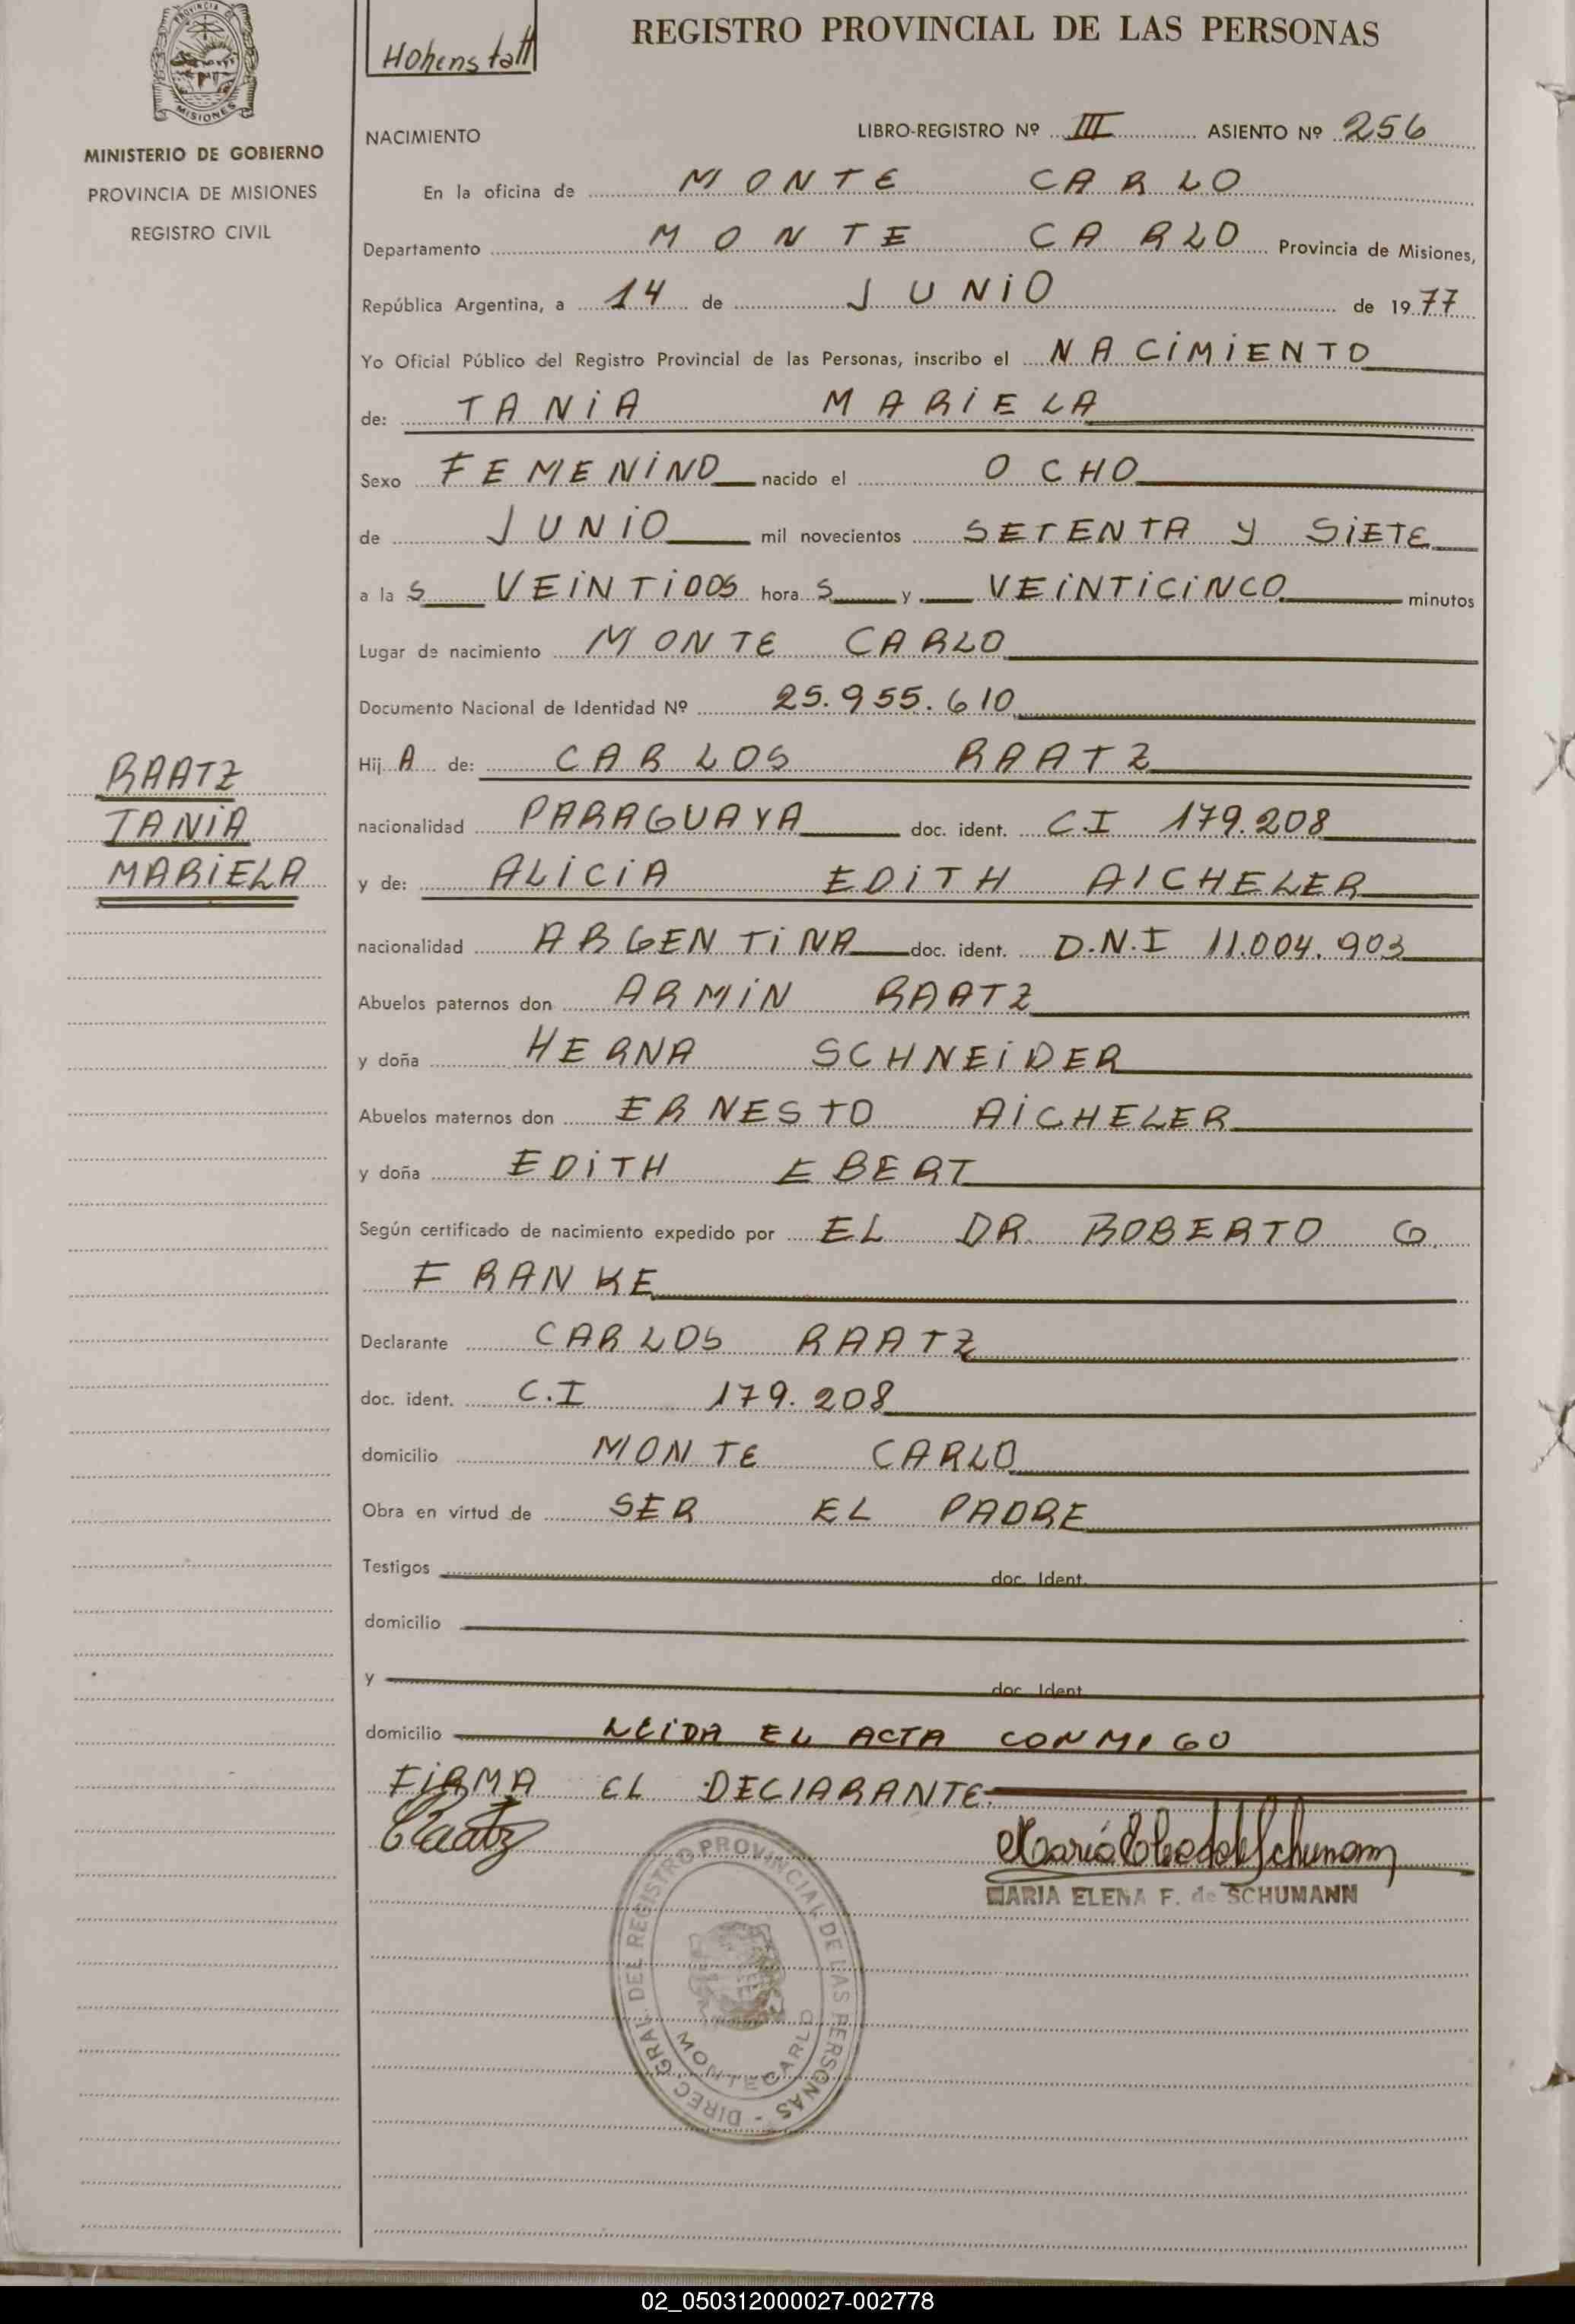 PROVINCIA DE
MISIONES
MINISTERIO DE GOBIERNO
PROVINCIA DE MISIONES
REGISTRO CIVIL
RAATZ
TANIA
MARIELA
Hohenstatt
REGISTRO PROVINCIAL DE LAS PERSONAS
NACIMIENTO LIBRO-REGISTRO Nº III ASIENTO Nº 256
En la oficina de MONTE CARLO
Departamento MONTE CARLO Provincia de Misiones,
República Argentina, a 14 de JUNIO de 1977
Yo Oficial Público del Registro Provincial de las Personas, inscribo el NACIMIENTO
de: TANIA MARIELA
Sexo FEMENINO nacido el OCHO
de JUNIO mil novecientos SETENTA Y SIETE
a la S VEINTIDOS hora S y VEINTICINCO minutos
Lugar de nacimiento MONTE CARLO
Documento Nacional de Identidad Nº 25.955.610
Hij A de: CARLOS RAATZ
nacionalidad PARAGUAYA doc. ident. C.I 179.208
y de: ALICIA EDITH AICHELER
nacionalidad ARGENTINA doc. ident. D.N.I 11.004.903
Abuelos paternos don ARMIN RAATZ
y doña HERNA SCHNEIDER
Abuelos maternos don ERNESTO AICHELER
y doña EDITH EBERT
Según certificado de nacimiento expedido por EL DR. ROBERTO G.
FRANKE
Declarante CARLOS RAATZ
doc. ident. C.I 179.208
domicilio MONTE CARLO
Obra en virtud de SER EL PADRE
Testigos doc. Ident.
domicilio
y doc. Ident.
domicilio LEIDA EL ACTA CONMIGO
FIRMA EL DECLARANTE.
CRaatz
MARIA ELENA F. de SCHUMANN
DIREC. GRAL. DEL REGISTRO PROVINCIAL DE LAS PERSONAS -
MONTECARLO
02_050312000027-002778